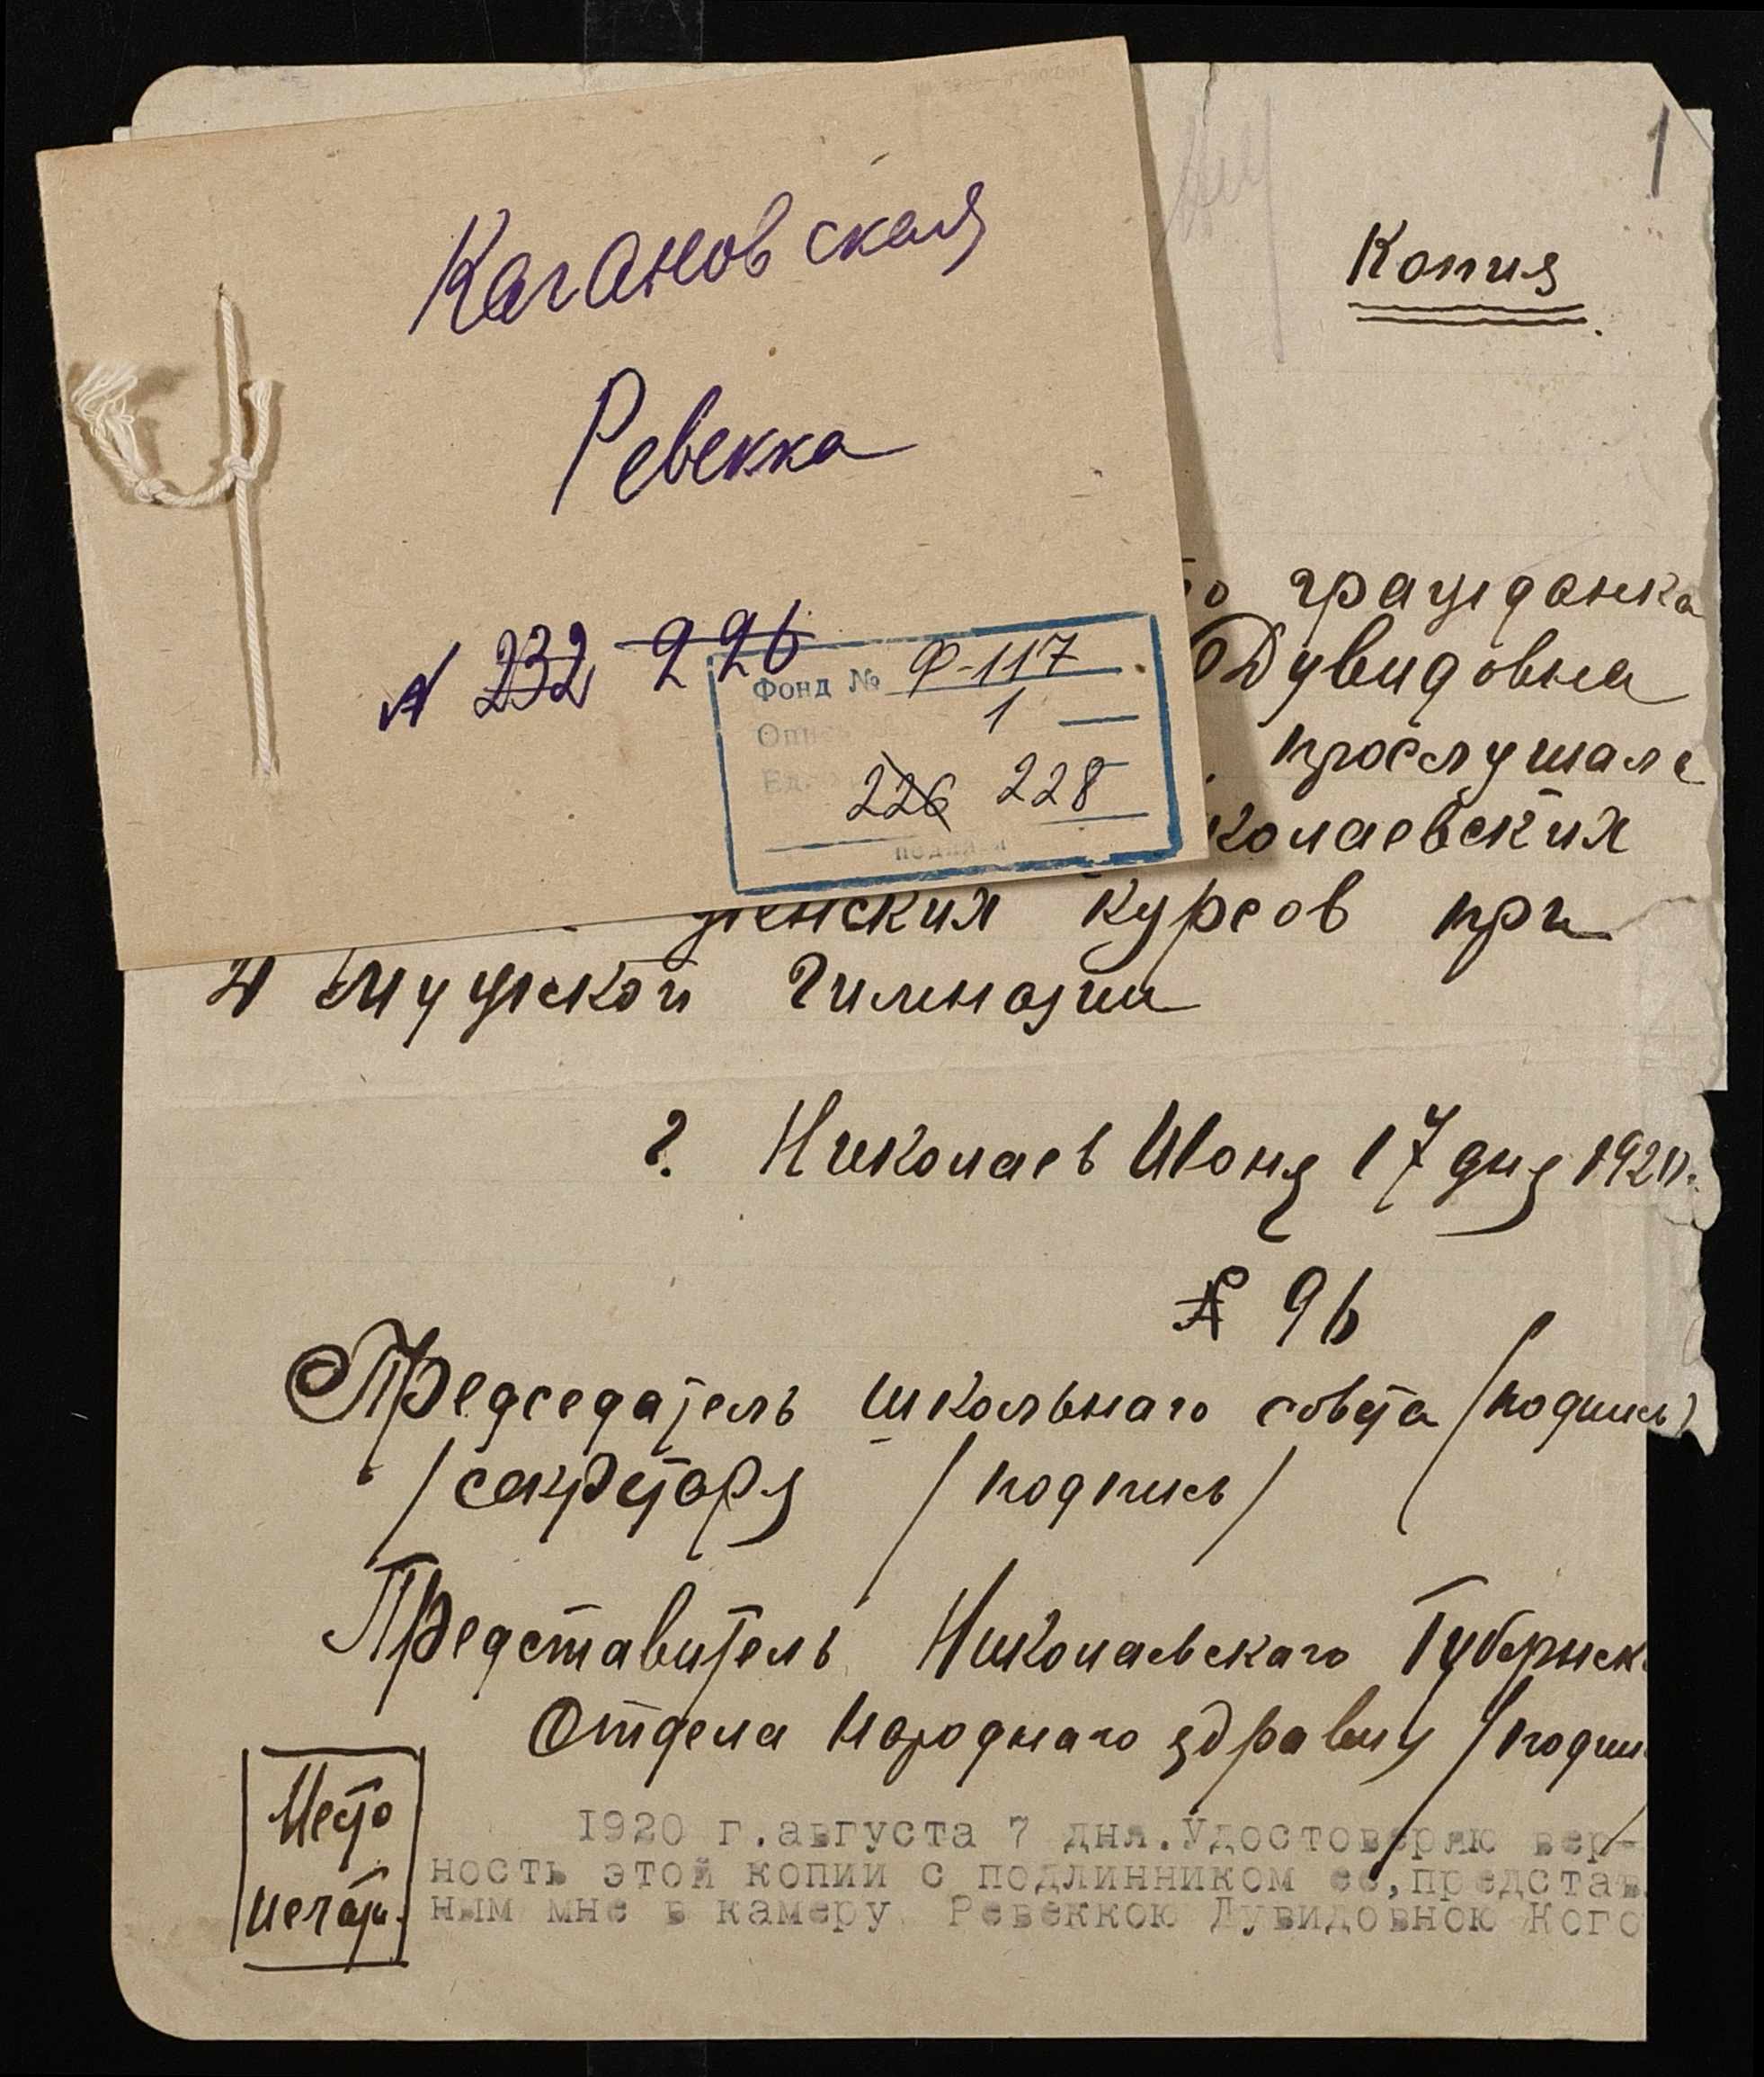 Кагановская
Ревекка
N 232 226
Фонд № Ф-117
Опись 1
Ед. 226 228
1
Копия
гражданка
Дувидовна
прослушала
колаевских
женских курсов при
мужской Гимназии
г. Николаев Июня 17 дня 1920 г.
№ 96
Председатель школьнаго совета /подпись/
/секретаря /подпись/
Представитель Николаевскаго Губернск
Отдела Народнаго здравия /подпи
Место
печати.
1920 г.августа 7 дня.Удостоверяю вер-
ность этой копии с подлинником ее,представ
ным мне в камеру Ревеккою Дувидовною Кого